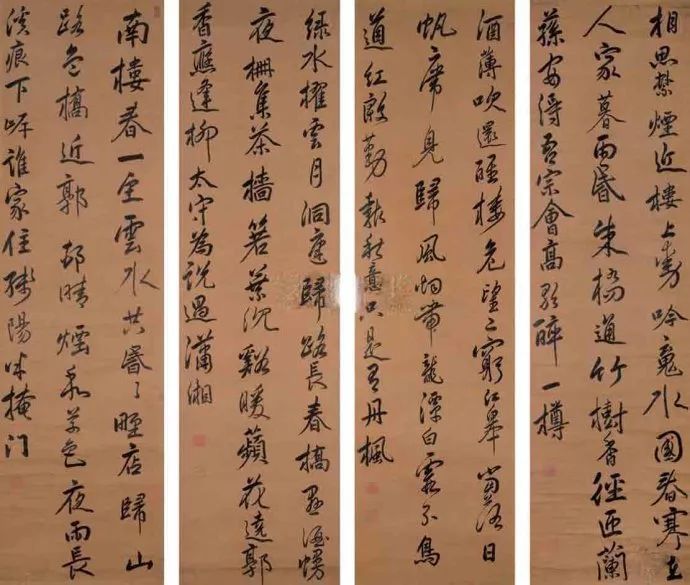 相思禁煙近樓上動吟魂水國春寒在
人家暮雨昏朱橋通竹樹香徑匝蘭
蓀安得吾宗會高歌醉一樽
酒薄吹還醒樓危望已窮江皋當落日
帆席見歸風煙帶龍潭白霞分鳥
道紅殷勤報秋意只是有丹楓
綠水櫂雲月洞庭歸路長春橋懸酒幔
夜柵集茶檣箬葉沉谿暖蘋花遶郭
香應逢柳太守為說過瀟湘
南樓春一望雲水共昏々野店歸山
路危橋近郭邨晴煙和草色夜雨長
溪痕下岸誰家住殘陽半掩門